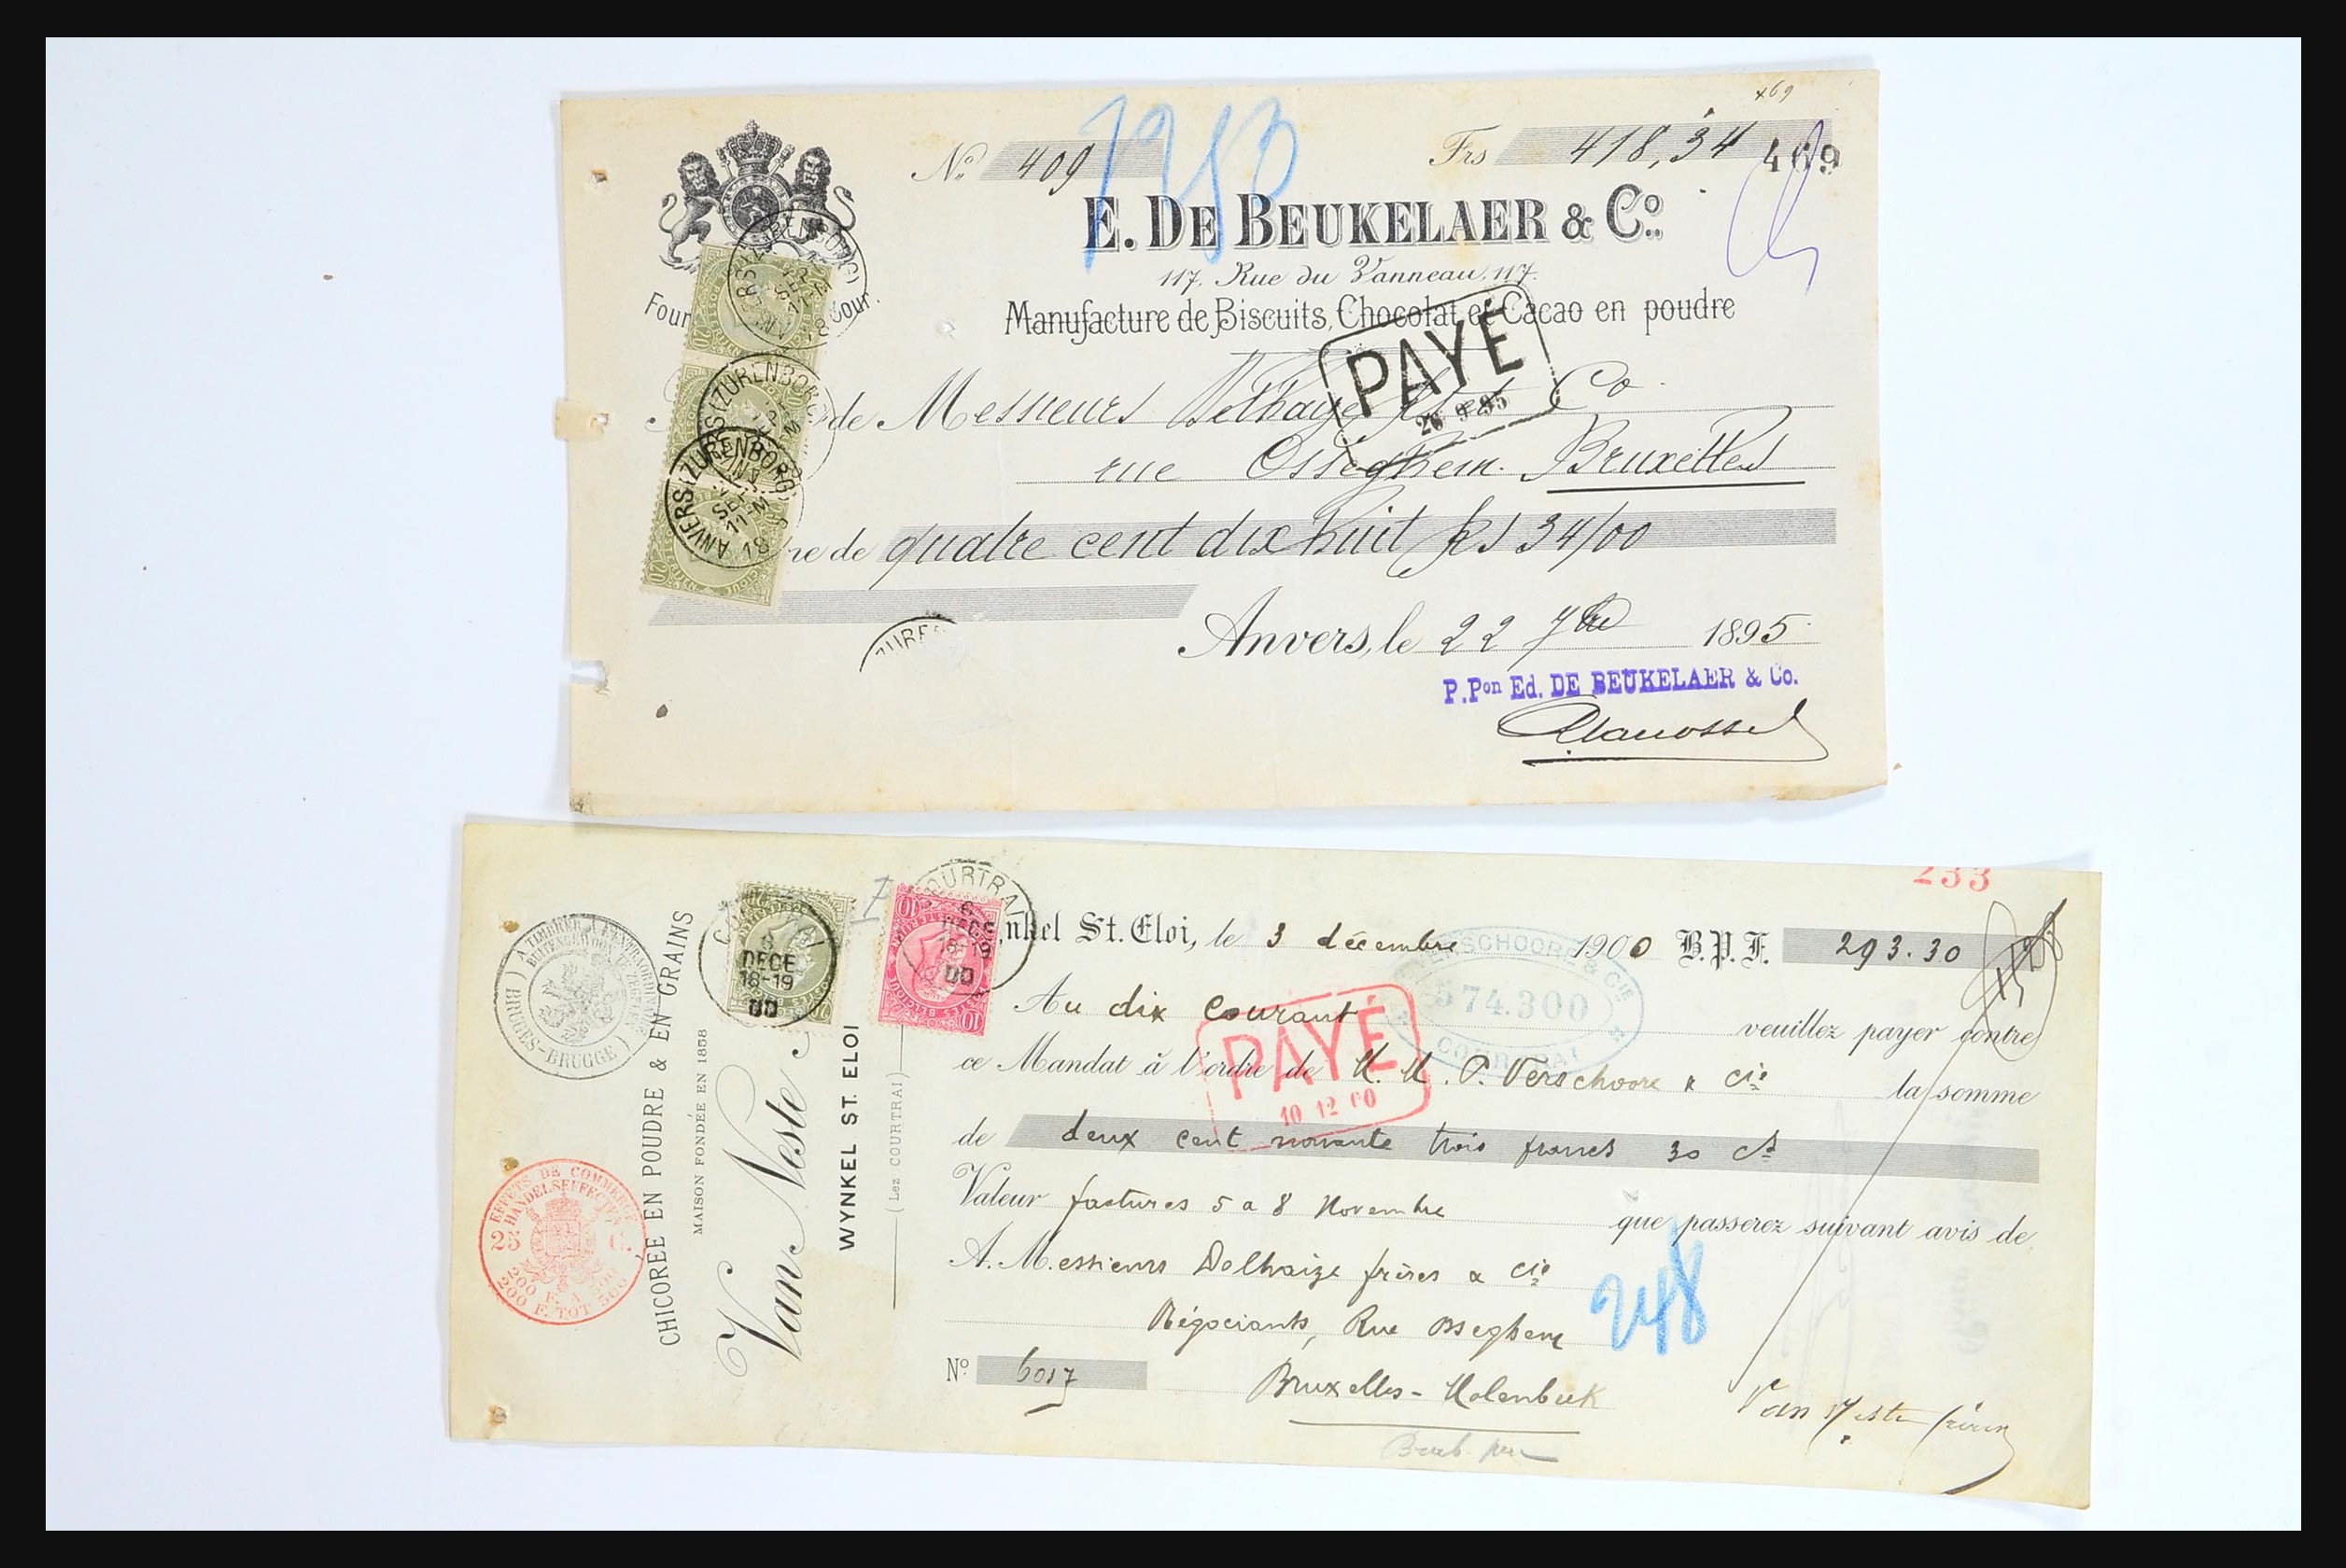 ×69
No. 409
1250
Frs 418,34
469
E. DE BEUKELAER & Co.
117, Rue du Vanneau, 117.
Four Cour.
Manufacture de Biscuits, Chocolat et Cacao en poudre
PAYÉ
26 9 95
de Messieurs Delhaye & Co
rue Osseghem. Bruxelles
me de quatre cent dix huit frs 34/00
Anvers, le 22 7bre 1895
P.Pon Ed. DE BEUKELAER & Co.
ANVERS (ZURENBORG)
SEPT
11-M
ANVERS (ZURENBORG)
ANVERS (ZURENBORG)
SEPT
11-M
18
ZURE
233
nkel St. Eloi, le 3 décembre 1900 B.P.F. 293.30
Au dix courant veuillez payer contre
ce Mandat à l'ordre de M. M. P. Verschoore & Cie la somme
de deux cent nonante trois francs 30 cs
Valeur factures 5 a 8 Novembre que passerez suivant avis de
A. Messieurs Delhaize frères & Cie
Négociants, Rue Osseghem
248
No 6017
Bruxelles - Molenbeek
Van Neste frères
PAYÉ
10 12 00
SCHOORE & CIE
574.300
COURTRAI
COURTRAI
DECE
18-19
00
COURTRAI
DECE
18-19
00
CHICORÉE EN POUDRE & EN GRAINS
MAISON FONDÉE EN 1858
Van Neste
WYNKEL ST. ELOI
(Lez COURTRAI)
A TIMBRER A L'EXTRAORDINAIRE
BUITENGEWOON TE ZEGELEN
(BRUGES-BRUGGE)
EFFETS DE COMMERCE
HANDELSEFFECTEN
25 C.
200 F. A 500
200 F. TOT 500